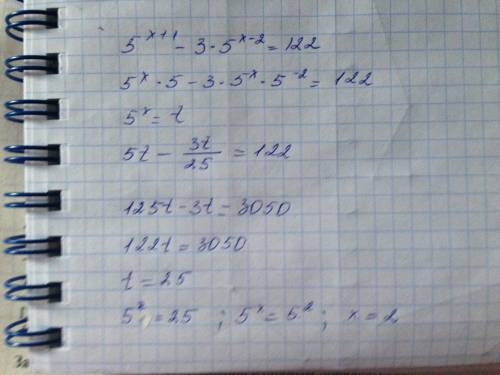 5^(x+1) - 3·5^(x-2) = 122
5^x · 5 - 3 · 5^x · 5^(-2) = 122
5^x = t
5t - 3t/25 = 122
125t - 3t = 3050
122t = 3050
t = 25
5^x = 25 ; 5^x = 5^2 ; x = 2
За